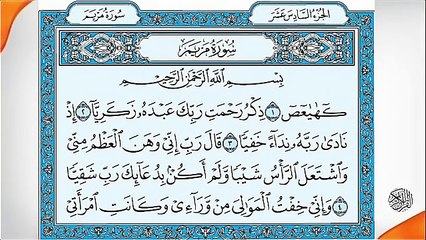 سُورَةُ مَرْيَمَ الجُزْءُ السَّادِسَ عَشَرَ
سُورَةُ مَرْيَمَ
بِسْمِ اللَّهِ الرَّحْمَٰنِ الرَّحِيمِ
كٓهيعٓصٓ ١ ذِكْرُ رَحْمَتِ رَبِّكَ عَبْدَهُۥ زَكَرِيَّآ ٢ إِذْ
نَادَىٰ رَبَّهُۥ نِدَآءً خَفِيًّا ٣ قَالَ رَبِّ إِنِّي وَهَنَ ٱلْعَظْمُ مِنِّي
وَٱشْتَعَلَ ٱلرَّأْسُ شَيْبًا وَلَمْ أَكُنۢ بِدُعَآئِكَ رَبِّ شَقِيًّا
٤ وَإِنِّي خِفْتُ ٱلْمَوَٰلِيَ مِن وَرَآءِي وَكَانَتِ ٱمْرَأَتِي